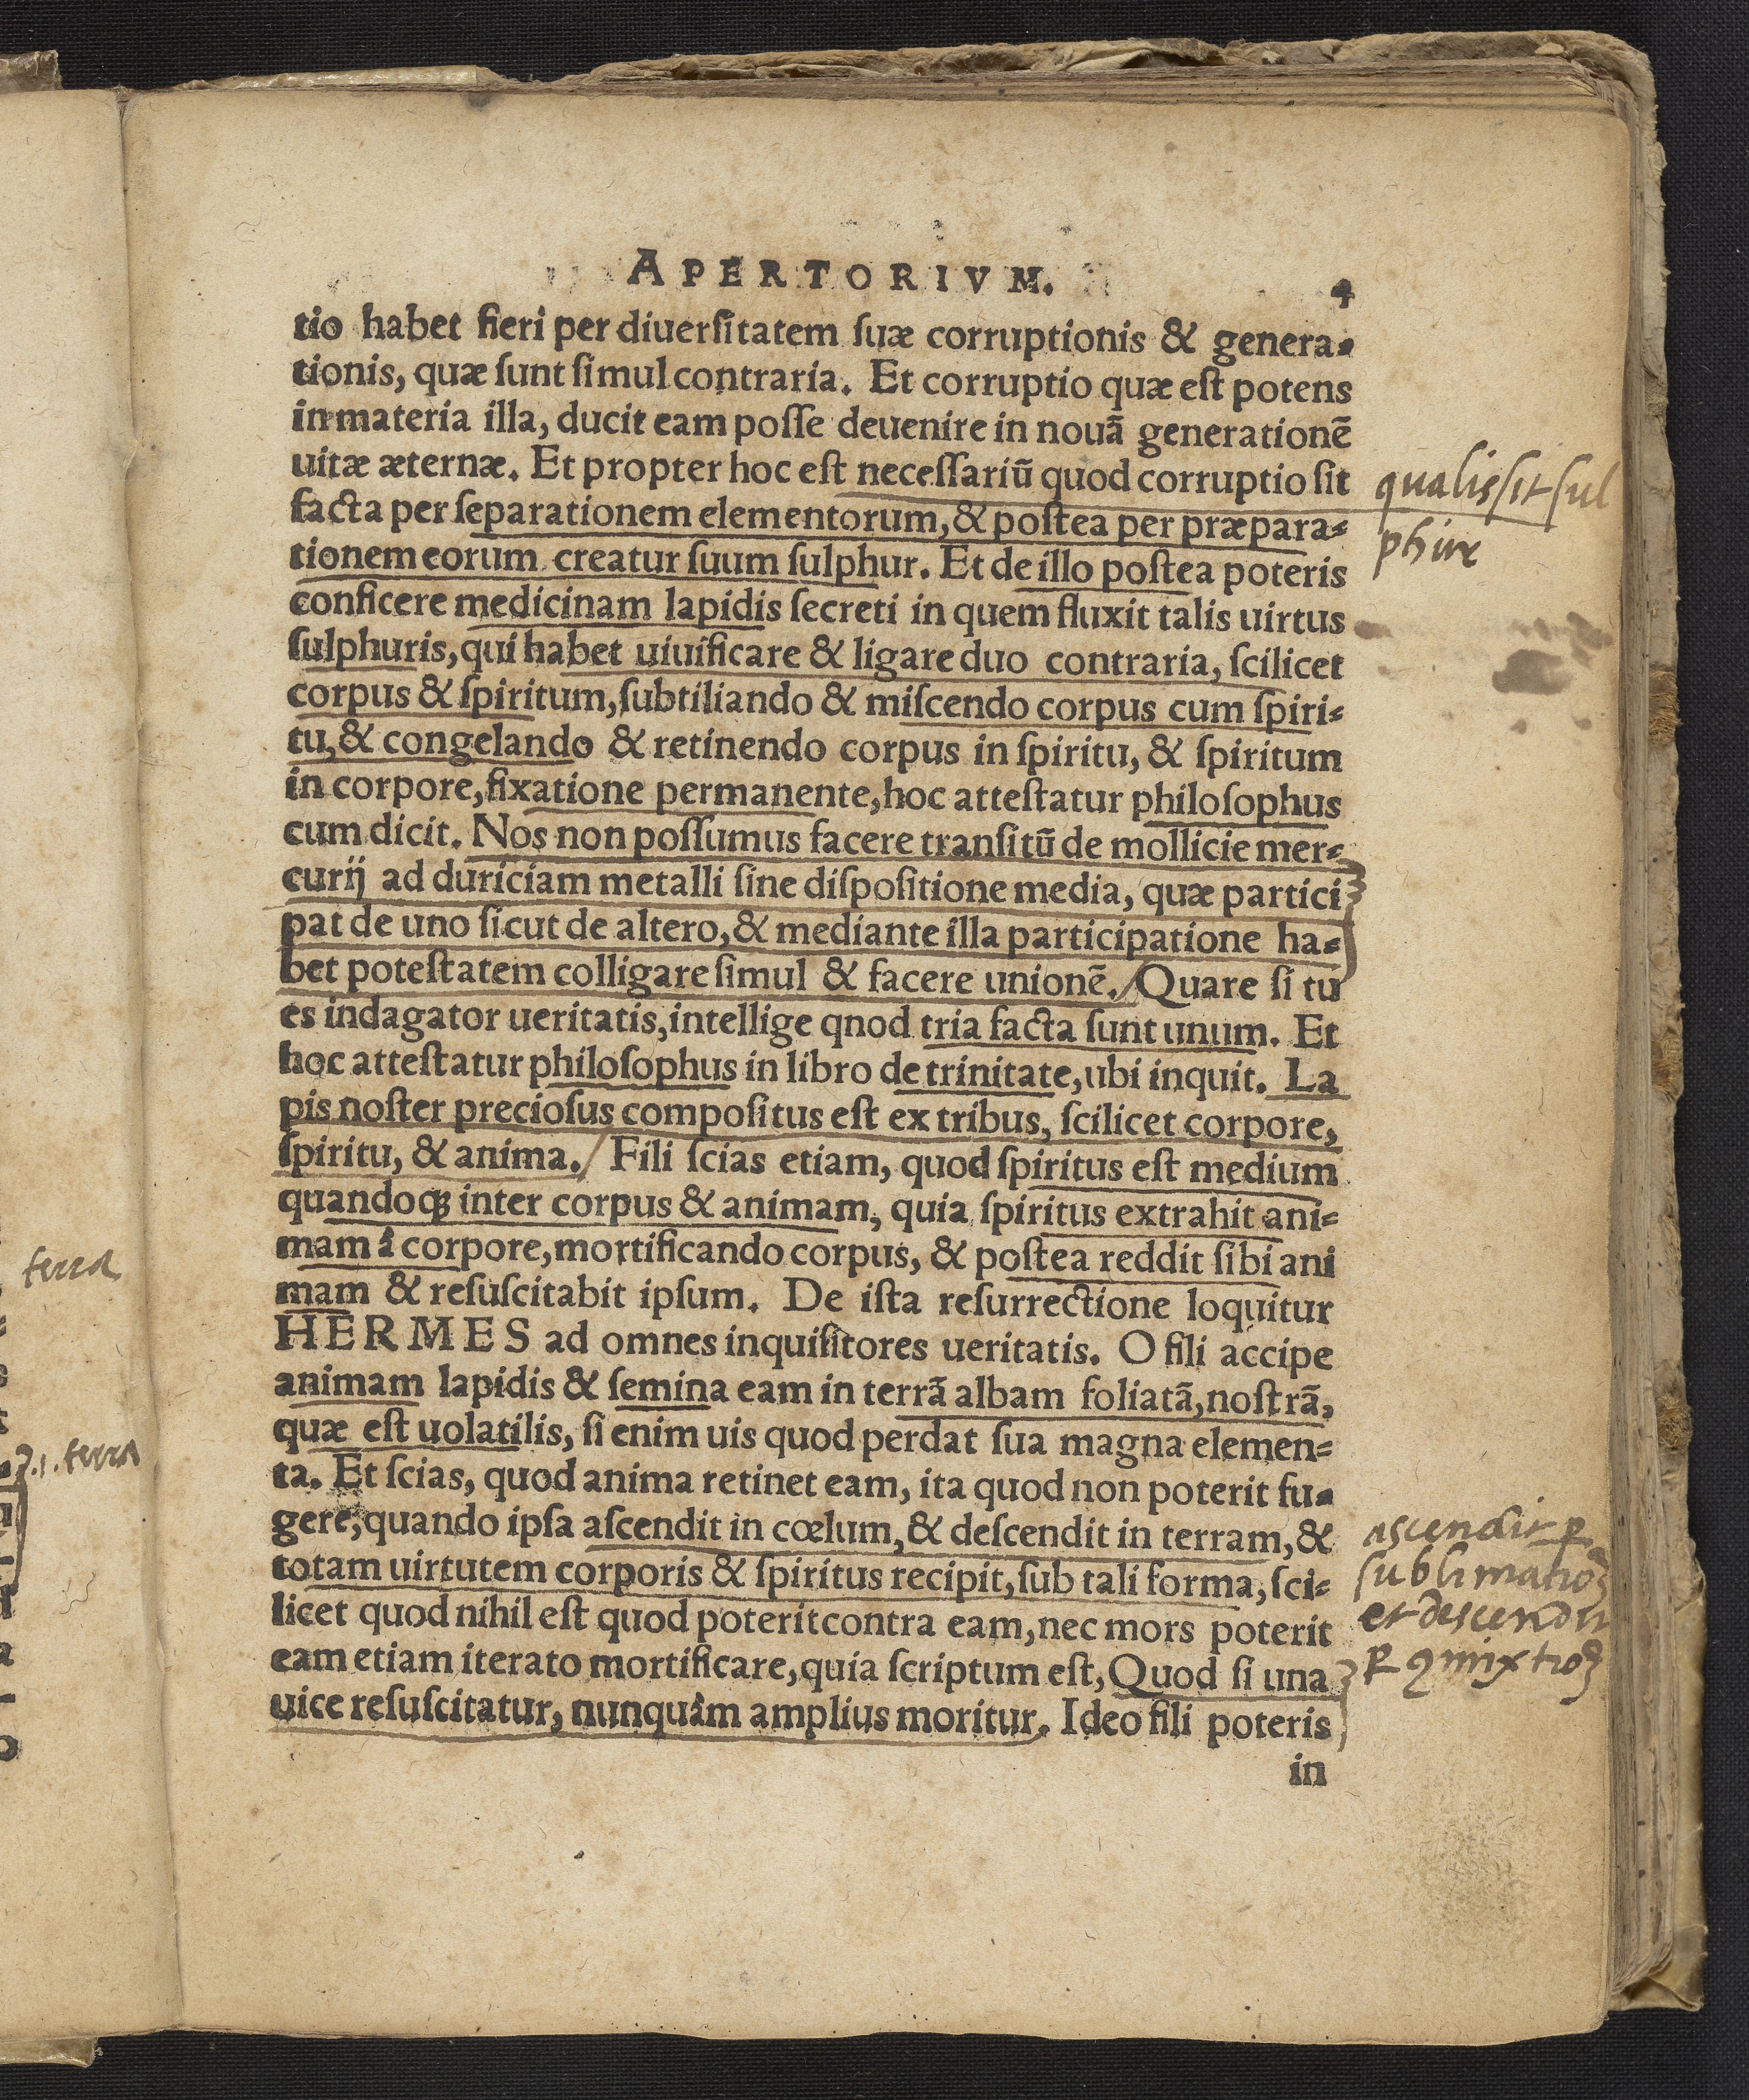 APERTORIVM. 4
tio habet fieri per diuerſitatem ſuæ corruptionis & genera-
tionis, quæ ſunt ſimul contraria. Et corruptio quæ eſt potens
in materia illa, ducit eam poſſe deuenire in nouã generationẽ
uitæ æternæ. Et propter hoc eſt neceſſariũ quod corruptio ſit
facta per ſeparationem elementorum, & poſtea per præpara-
tionem eorum creatur ſuum ſulphur. Et de illo poſtea poteris
conficere medicinam lapidis ſecreti in quem fluxit talis uirtus
ſulphuris, qui habet uiuificare & ligare duo contraria, ſcilicet
corpus & ſpiritum, ſubtiliando & miſcendo corpus cum ſpiri-
tu, & congelando & retinendo corpus in ſpiritu, & ſpiritum
in corpore, fixatione permanente, hoc atteſtatur philoſophus
cum dicit. Nos non poſſumus facere tranſitũ de mollicie mer-
curij ad duriciam metalli ſine diſpoſitione media, quæ partici
pat de uno ſicut de altero, & mediante illa participatione ha-
bet poteſtatem colligare ſimul & facere unionẽ. Quare ſi tu
es indagator ueritatis, intellige qnod tria facta ſunt unum. Et
hoc atteſtatur philoſophus in libro de trinitate, ubi inquit. La
pis noſter precioſus compoſitus eſt ex tribus, ſcilicet corpore,
ſpiritu, & anima. Fili ſcias etiam, quod ſpiritus eſt medium
quandoqꝫ inter corpus & animam, quia ſpiritus extrahit ani-
mam â corpore, mortificando corpus, & poſtea reddit ſibi ani
mam & reſuſcitabit ipſum. De iſta reſurrectione loquitur
HERMES ad omnes inquiſitores ueritatis. O fili accipe
animam lapidis & ſemina eam in terrã albam foliatã, noſtrã,
quæ eſt uolatilis, ſi enim uis quod perdat ſua magna elemen-
ta. Et ſcias, quod anima retinet eam, ita quod non poterit fu-
gere, quando ipſa aſcendit in cœlum, & deſcendit in terram, &
totam uirtutem corporis & ſpiritus recipit, ſub tali forma, ſci-
licet quod nihil eſt quod poterit contra eam, nec mors poterit
eam etiam iterato mortificare, quia ſcriptum eſt, Quod ſi una
uice reſuſcitatur, nunquâm amplius moritur. Ideo fili poteris
in
qualis ſit ſul
phur
ascendit ꝑ
ſublimatioꝫ
et descendit
ꝑ ꝯmixtioꝫ
terra
.i. terra